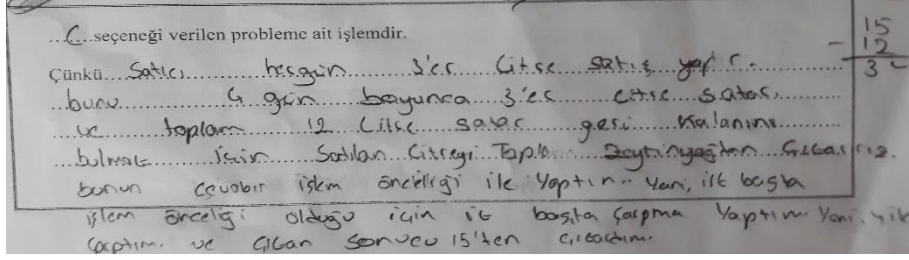 ...C...seçeneği verilen probleme ait işlemdir.
15
- 12
3
Çünkü...Satıcı...hergün...3'er...Litre...satış...yapar...
...bunu...4 gün...boyunca...3'er...Litre...satar,...
...ve...toplam...12...Litre...satar...geri...kalanını...
...bulmak...için...Satılan...Litreyi...Toplam...Zeytinyağdan...Çıkarırız.
bunun cevabını işlem önceliği ile yaptım. Yani, ilk başta
işlem önceliği olduğu için ilk başta çarpma Yaptım. Yani,
çarptım. ve Çıkan sonucu 15'ten çıkardım.